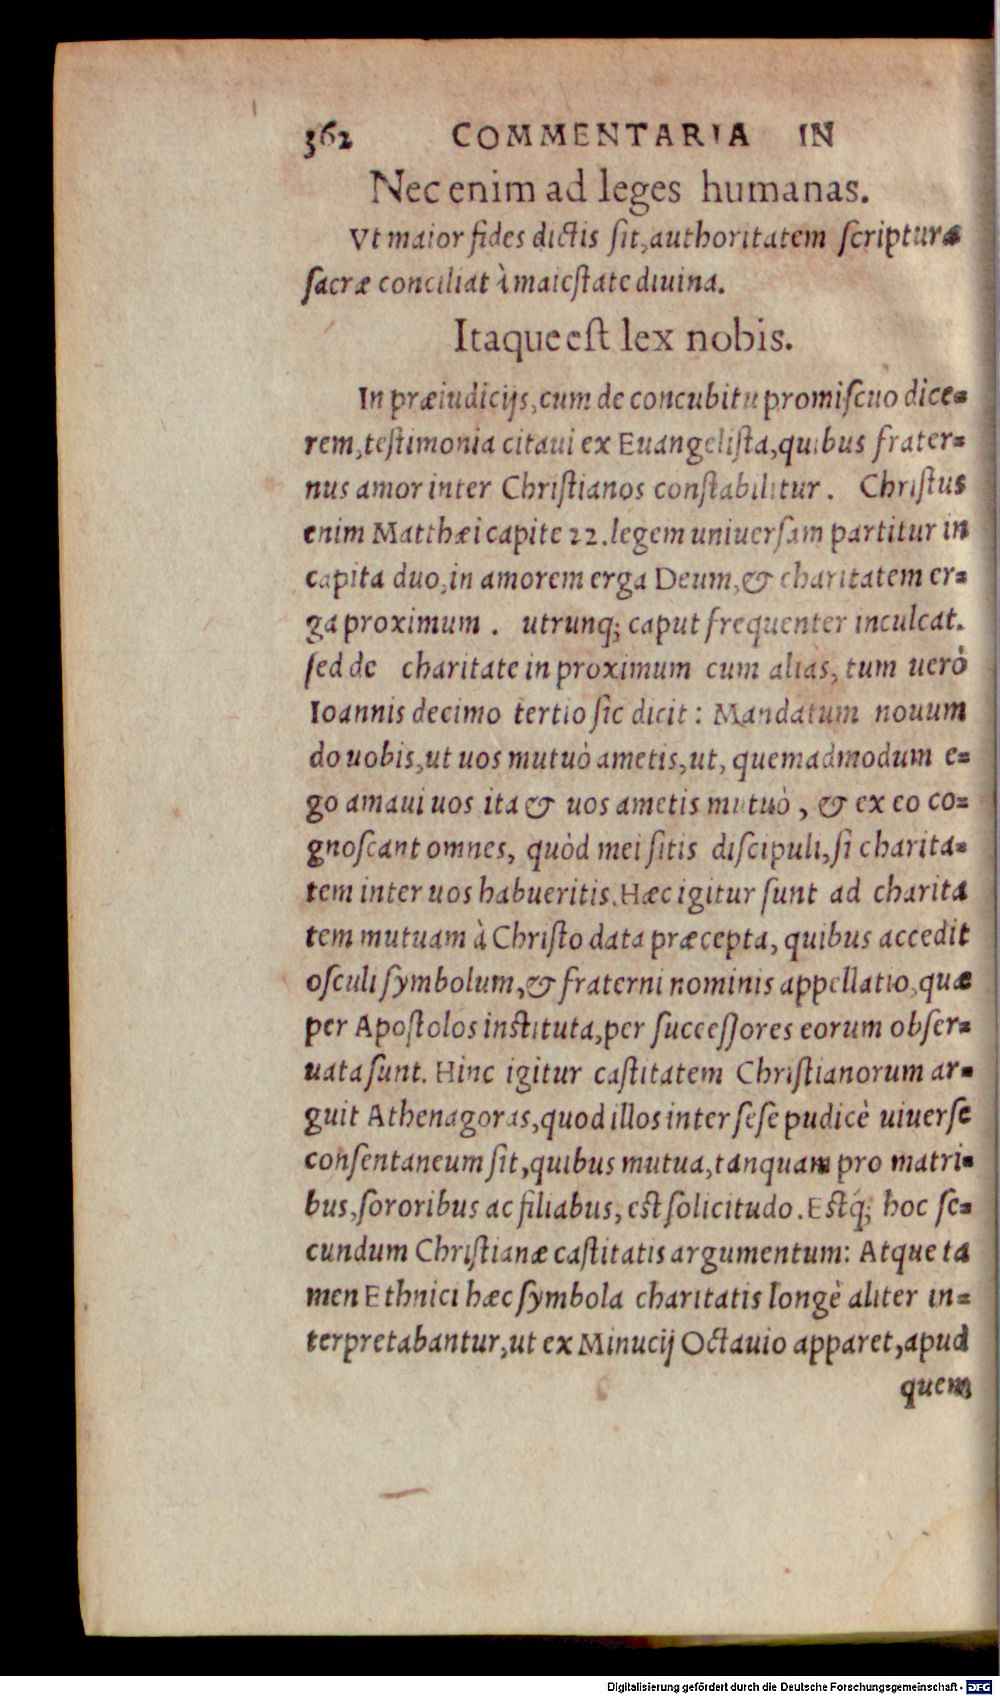 362 COMMENTARIA IN
Nec enim ad leges humanas.
Vt maior fides dictis ſit, authoritatem ſcripturæ
ſacræ conciliat à maieſtate diuina.
Itaque eſt lex nobis.
In præiudicijs, cum de concubitu promiſcuo dice=
rem, teſtimonia citaui ex Euangeliſta, quibus frater=
nus amor inter Chriſtianos conſtabilitur. Chriſtus
enim Matthæi capite 22. legem uniuerſam partitur in
capita duo, in amorem erga Deum, & charitatem er=
ga proximum. utrunq; caput frequenter inculcat.
ſed de charitate in proximum cum alias, tum uerò
Ioannis decimo tertio ſic dicit: Mandatum nouum
do uobis, ut uos mutuò ametis, ut, quemadmodum e=
go amaui uos ita & uos ametis mutuò, & ex eo co=
gnoſcant omnes, quòd mei ſitis diſcipuli, ſi charita=
tem inter uos habueritis. Hæc igitur ſunt ad charita
tem mutuam à Chriſto data præcepta, quibus accedit
oſculi ſymbolum, & fraterni nominis appellatio, quæ
per Apoſtolos inſtituta, per ſucceſſores eorum obſer=
uata ſunt. Hinc igitur caſtitatem Chriſtianorum ar=
guit Athenagoras, quod illos inter ſeſe pudicè uiuerſe
conſentaneum ſit, quibus mutua, tanquam pro matri=
bus, ſororibus ac filiabus, eſt ſolicitudo. Eſtq́; hoc ſe=
cundum Chriſtianæ caſtitatis argumentum: Atque ta
men Ethnici hæc ſymbola charitatis longè aliter in=
terpretabantur, ut ex Minucij Octauio apparet, apud
quem
Digitalisierung gefördert durch die Deutsche Forschungsgemeinschaft - DFG